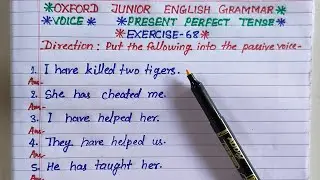 *OXFORD JUNIOR ENGLISH GRAMMAR
*VOICE* *PRESENT PERFECT TENSE*
*EXERCISE-68*
Direction: Put the following into the passive voice-
1. I have killed two tigers.
Ans-
2. She has cheated me.
Ans-
3. I have helped her.
Ans-
4. They have helped us.
Ans-
5. He has taught her.
Ans-